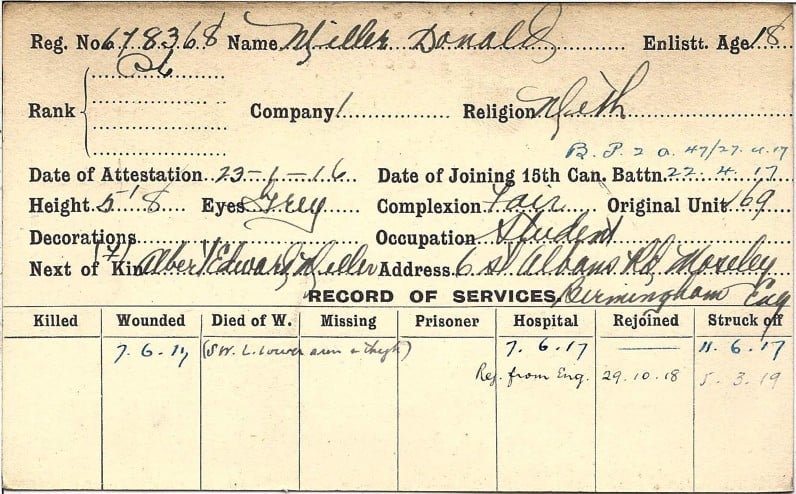 Reg. No 678368 Name Miller Donald Enlistt. Age 18
Pt
Rank Company 1 Religion Meth
B.P. 2 a. 47/27.4.17
Date of Attestation 23-1-16 Date of Joining 15th Can. Battn. 22.4.17
Height 5'8 Eyes Grey Complexion Fair Original Unit 169
Decorations Occupation Student
Next of Kin (f) Albert Edward Miller Address 6 St Albans Rd, Moseley
RECORD OF SERVICES Birmingham Eng
Killed Wounded Died of W. Missing Prisoner Hospital Rejoined Struck off
7.6.17 (SW. L. lower arm & thigh) 7.6.17 11.6.17
Rej. from Eng. 29.10.18 5.3.19